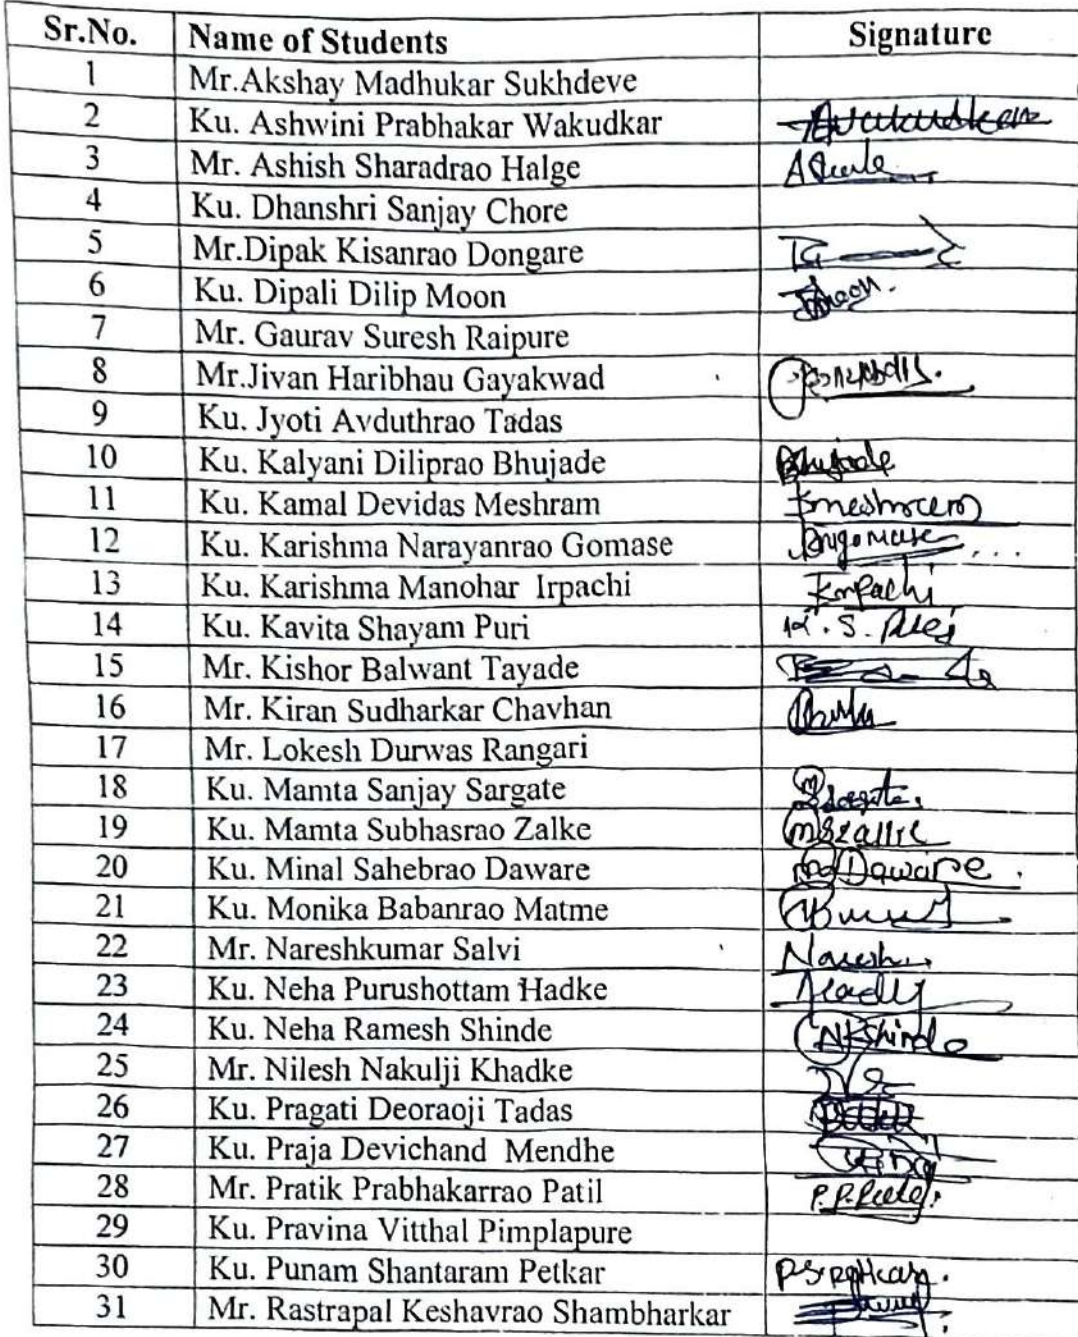 Sr.No. Name of Students Signature
1 Mr.Akshay Madhukar Sukhdeve
2 Ku. Ashwini Prabhakar Wakudkar
3 Mr. Ashish Sharadrao Halge
4 Ku. Dhanshri Sanjay Chore
5 Mr.Dipak Kisanrao Dongare
6 Ku. Dipali Dilip Moon
7 Mr. Gaurav Suresh Raipure
8 Mr.Jivan Haribhau Gayakwad
9 Ku. Jyoti Avduthrao Tadas
10 Ku. Kalyani Diliprao Bhujade Bhujade
11 Ku. Kamal Devidas Meshram Kmeshram
12 Ku. Karishma Narayanrao Gomase
13 Ku. Karishma Manohar Irpachi
14 Ku. Kavita Shayam Puri K.S. Puri
15 Mr. Kishor Balwant Tayade
16 Mr. Kiran Sudharkar Chavhan
17 Mr. Lokesh Durwas Rangari
18 Ku. Mamta Sanjay Sargate
19 Ku. Mamta Subhasrao Zalke MSZalke
20 Ku. Minal Sahebrao Daware Daware
21 Ku. Monika Babanrao Matme
22 Mr. Nareshkumar Salvi Naresh
23 Ku. Neha Purushottam Hadke
24 Ku. Neha Ramesh Shinde NRShinde
25 Mr. Nilesh Nakulji Khadke
26 Ku. Pragati Deoraoji Tadas
27 Ku. Praja Devichand Mendhe
28 Mr. Pratik Prabhakarrao Patil
29 Ku. Pravina Vitthal Pimplapure
30 Ku. Punam Shantaram Petkar P.S.petkar.
31 Mr. Rastrapal Keshavrao Shambharkar